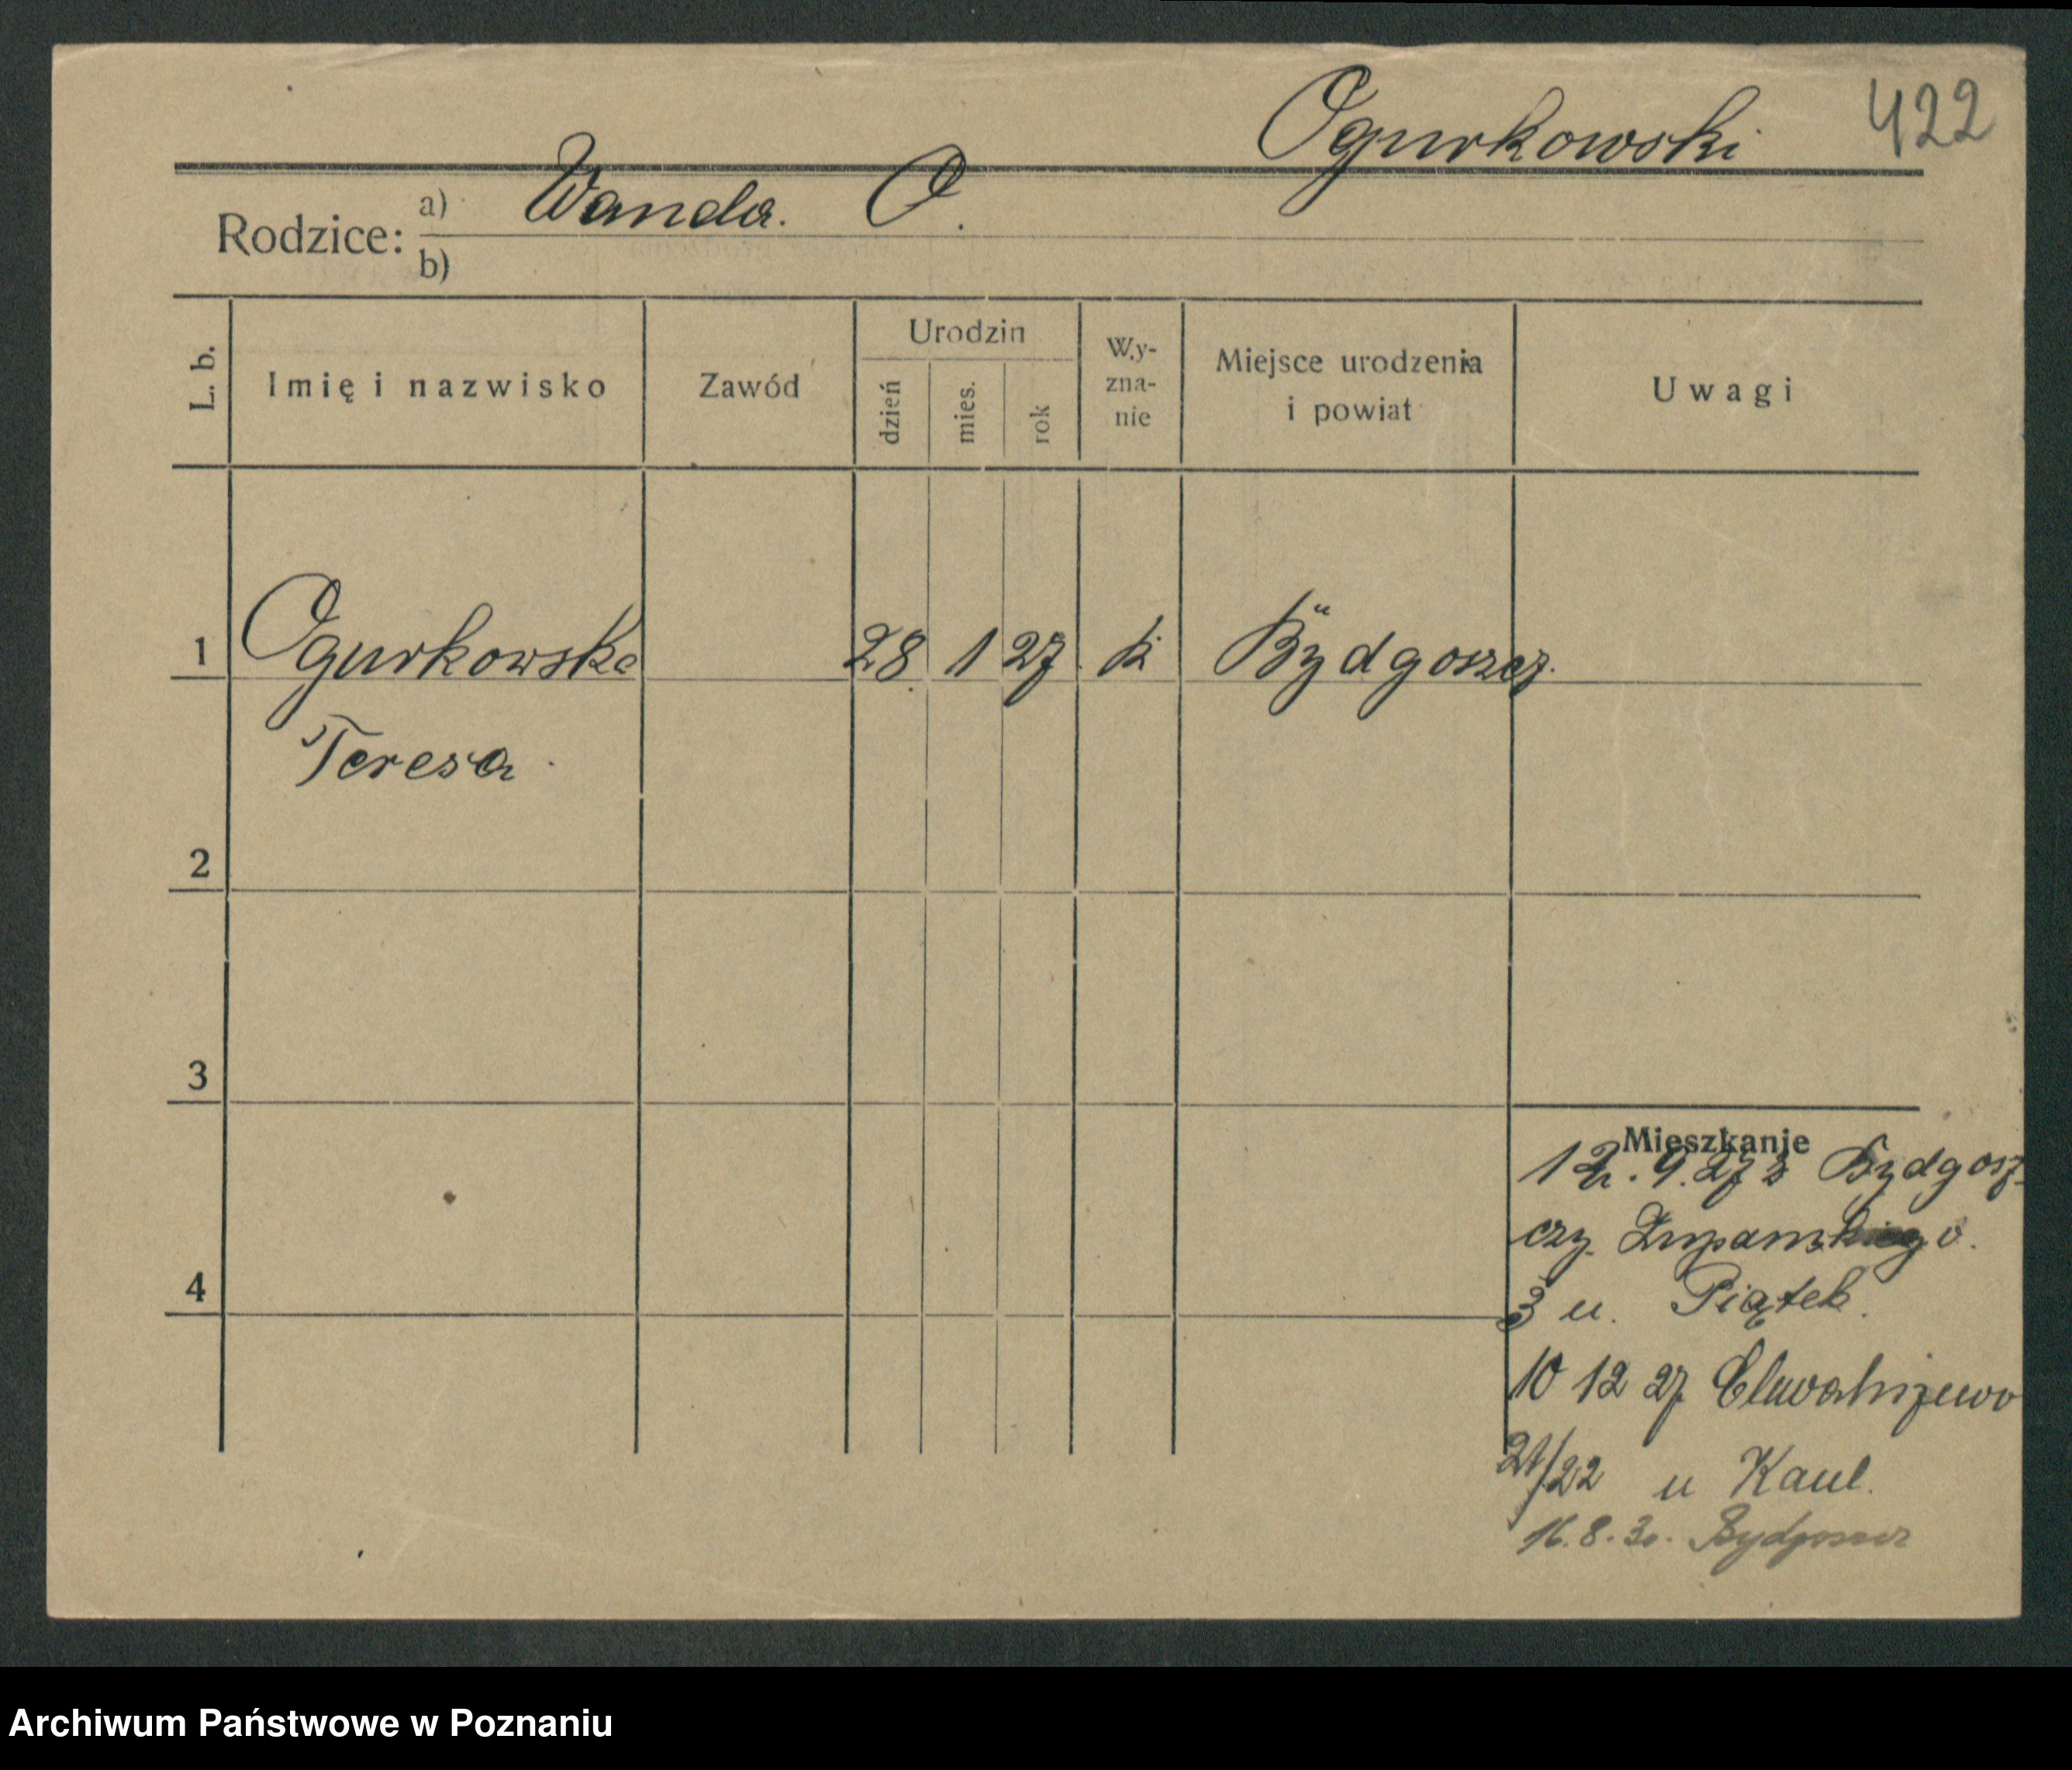 Ogurkowski 422
Rodzice: a) Wanda. O.
b)
L. b. Imię i nazwisko Zawód Urodzin dzień mies. rok Wy-zna-nie Miejsce urodzenia i powiat Uwagi
1 Ogurkowska 28 1 27 k Bydgoszcz.
Teresa
2
3
4
Mieszkanie
12. 9. 27 z Bydgosz-
czy Żupańskiego.
3 u. Piątek.
10 12 27 Chwaliszewo
21/22 u Kaul.
16.8.30. Bydgoszcz
Archiwum Państwowe w Poznaniu